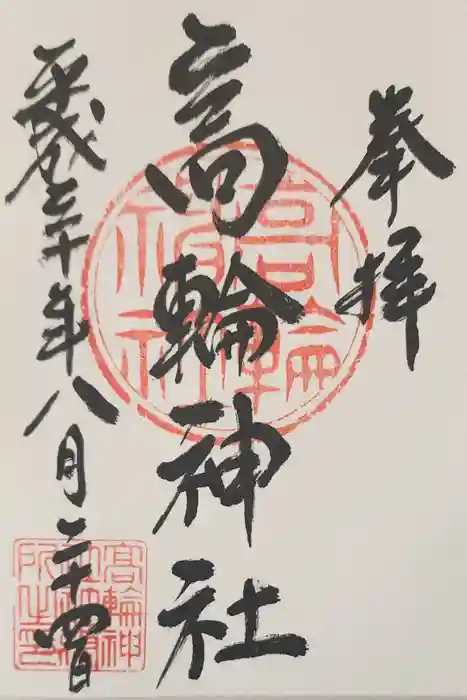 奉拝
高輪神社
平成三十年八月二十四日
高輪
神社
高輪神
社社務
所之印